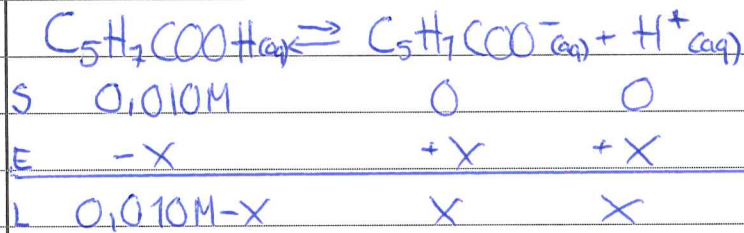 C₅H₇COOH(aq) ⇌ C₅H₇COO⁻(aq) + H⁺(aq)
S 0,010M 0 0
E -X +X +X
L 0,010M-X X X